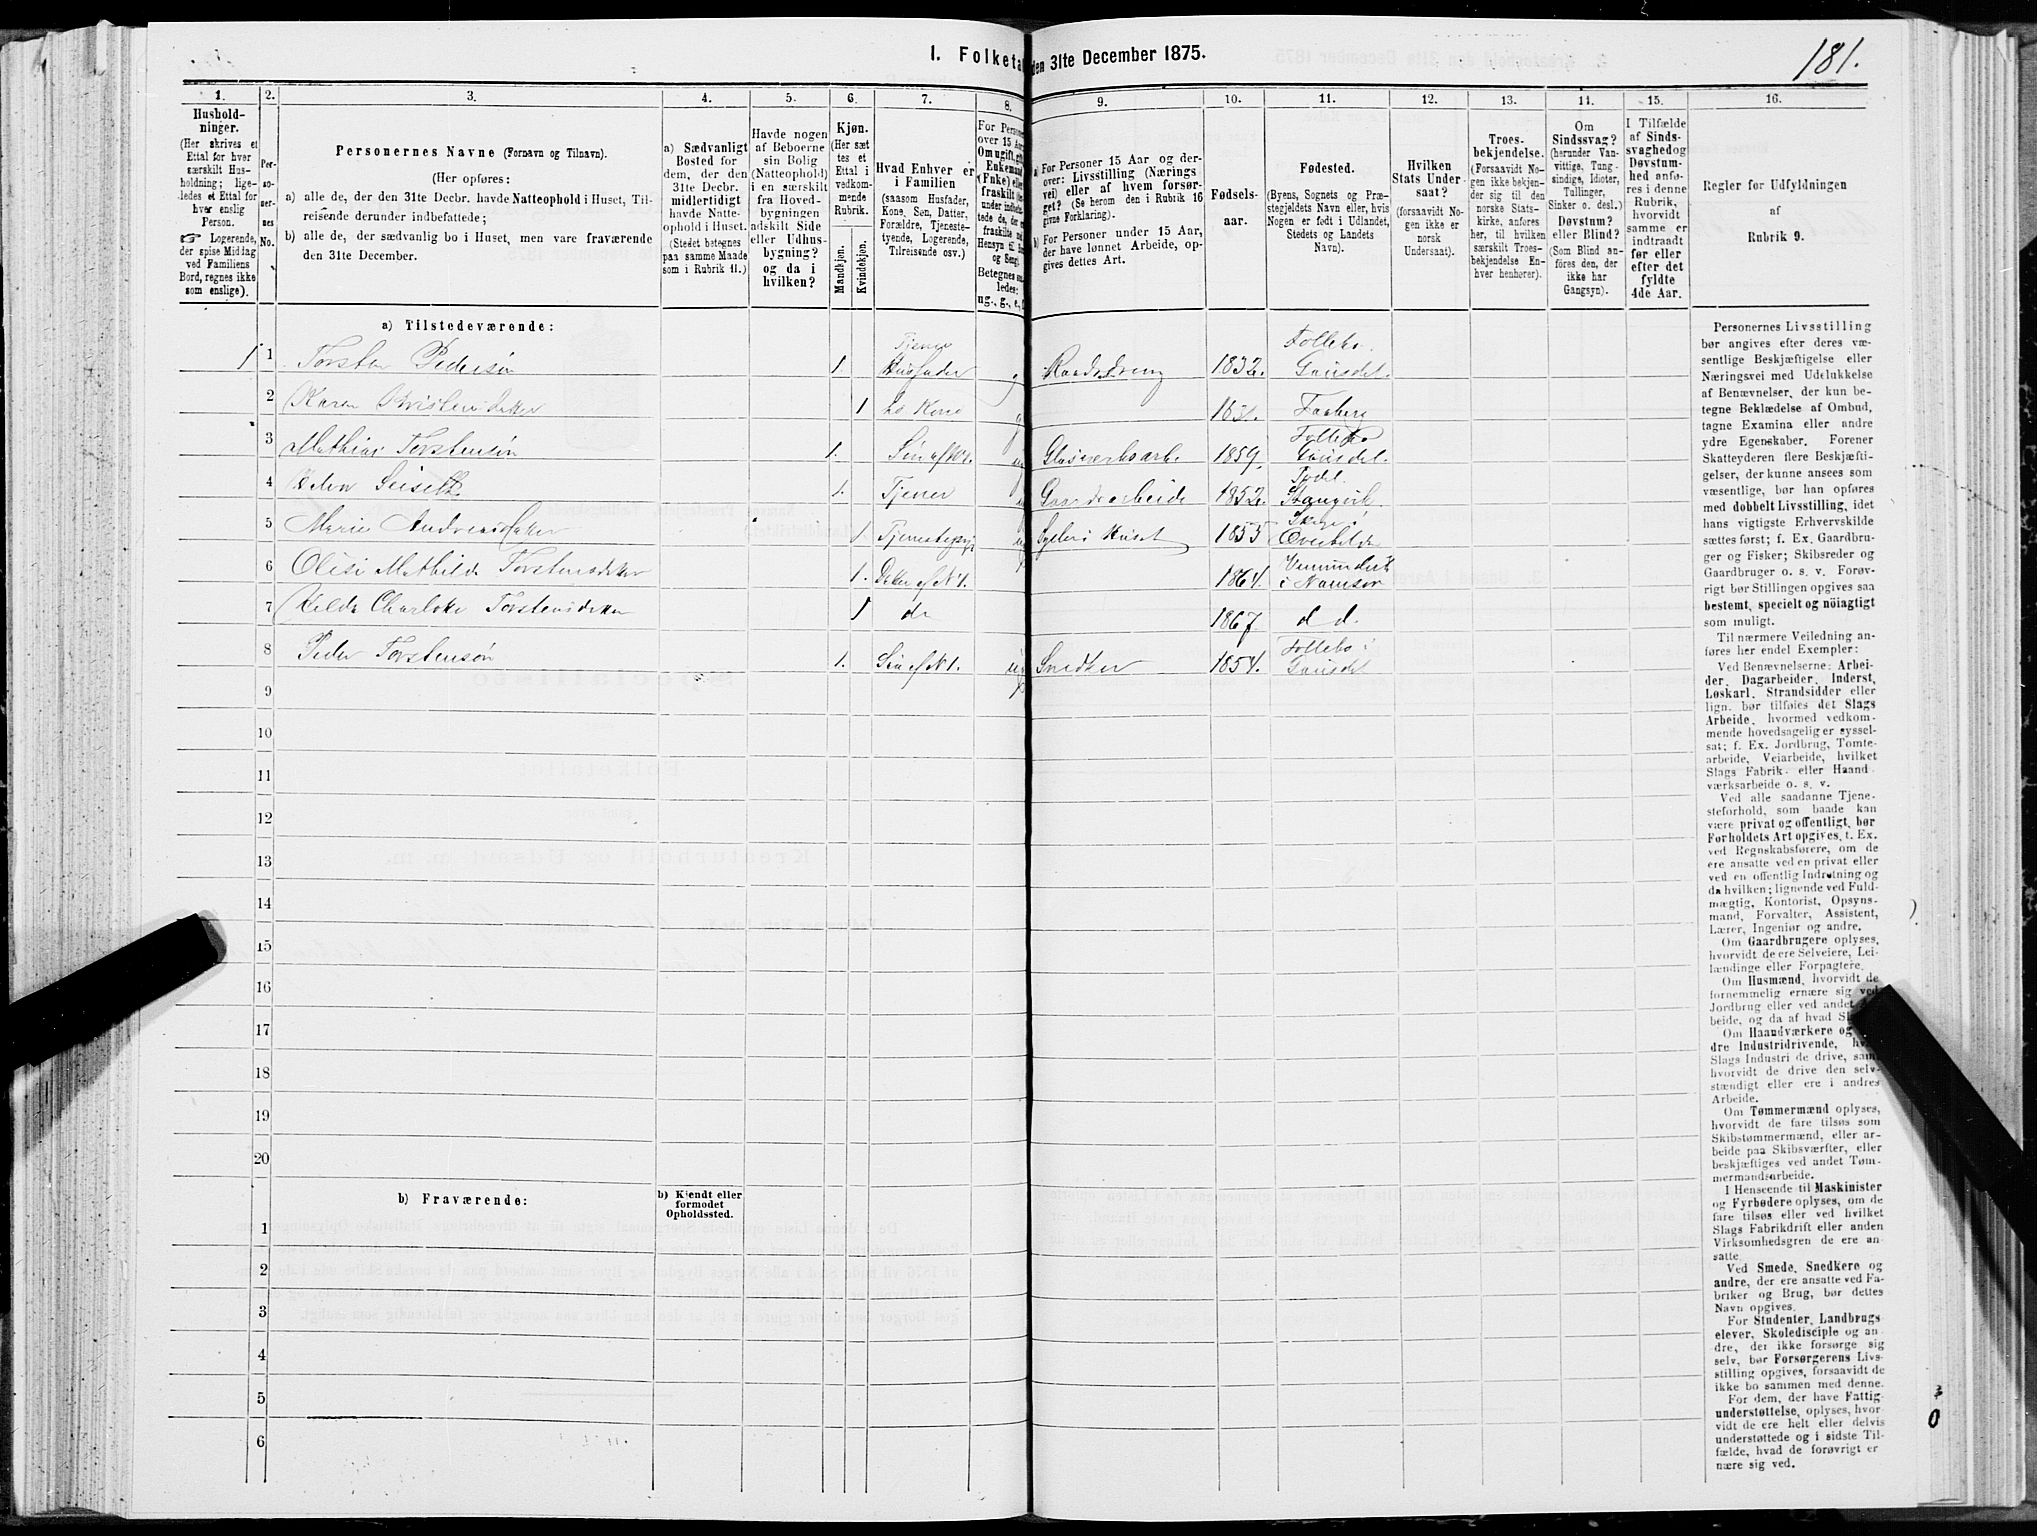 181.
I. Folketa
den 31te December 1875.
1.
2.
3.
4.
5.
6.
7.
8.
9.
10.
11.
12.
13.
14.
15.
16.
Hushold-
ninger.
(Her skrives et
Ettal for hver
særskilt Hus-
holdning; lige-
ledes et Ettal for
hver enslig
Person.
☞ Logerende,
der spise Middag
ved Familiens
Bord, regnes ikke
som enslige).
Per-
so-
ner-
nes
No.
Personernes Navne (Fornavn og Tilnavn).
(Her opføres:
a) alle de, der den 31te Decbr. havde Natteophold i Huset, Til-
reisende derunder indbefattede;
b) alle de, der sædvanlig bo i Huset, men vare fraværende
den 31te December.
a) Sædvanligt
Bosted for
dem, der den
31te Decbr.
midlertidigt
havde Natte-
ophold i Huset.
(Stedet betegnes
paa samme Maade
som i Rubrik 11.)
Havde nogen
af Beboerne
sin Bolig
(Natteophold)
i en særskilt
fra Hoved-
bygningen
adskilt Side
eller Udhus-
bygning?
og da i
hvilken?
Kjøn.
(Her sæt
tes et
Ettal i
vedkom-
mende
Rubrik.
Mandkjøn.
Kvindekjøn.
Hvad Enhver er
i Familien
(saasom Husfader,
Kone, Søn, Datter,
Forældre, Tjeneste-
tyende, Logerende,
Tilreisende osv.)
For Persone
over 15 Aar
Om ugift, gift
Enkemand
(Enke) eller
fraskilt
a) For Personer 15 Aar og der-
over: Livsstilling (Nærings
vei) eller af hvem forsør-
get? (Se herom den i Rubrik 16
givne Forklaring).
b) For Personer under 15 Aar,
der have lønnet Arbeide, op-
gives dettes Art.
Fødsels-
aar.
Fødested.
(Byens, Sognets og Præ-
stegjeldets Navn eller, hvis
Nogen er født i Udlandet,
Stedets og Landets
Navn).
Hvilken
Stats Under-
saat?
(forsaavidt No-
gen ikke er
norsk
Undersaat).
Troes-
bekjendelse.
(Forsaavidt No-
gen ikke bekjen-
der sig til den
norske Stats-
kirke, anføres
her, til hvilken
særskilt Troes-
bekjendelse En-
hver henhører).
Om
Sindssvag?
(herunder Van-
vittige, Tung-
sindige, Idioter,
Tullinger,
Sinker o. desl.)
Døvstum?
eller Blind?
(Som Blind an-
føres den, der
ikke har
Gangsyn).
I Tilfælde
af Sinds-
svaghed og
Døvstum-
hed anfø-
res i denne
Rubrik,
hvorvidt
samme er
indtraadt
før eller
efter det
fyldte
4de Aar.
Regler for Udfyldningen
af
Rubrik 9.
a) Tilstedeværende:
1 1 Torsten Pedersøn 1. Tjener Husfader g Gaardsdreng 1832. Follebo Gausdal.
2 Karen 1 hs Kone g Faaberg
3 Mathias Torstensøn 1. Søn af N1. ug Glasværksarb. 1859. Follebo Gausdal.
4 1. Tjener ug Gaardsarbeide 1852. Stangvik
5 Marie Andreasdatter 1 ug Syer i Huset 1855
6 Mathilde Torstensdatter 1. Datter af N1. 1864. i Namsos
7 Hilda Charlotte Torstensdatter 1 do 1867 d d.
8 Peder Torstensøn 1. Søn af N1. ug Snedker 1854. Follebo i Gausdal
9
10
11
12
13
14
15
16
17
18
19
20
b) Fraværende:
b) Kjendt eller
formodet
Opholdssted.
1
2
3
4
5
6
Personernes Livsstilling
bør angives efter deres væ-
sentlige Beskjæftigelse eller
Næringsvei med Udelukkelse
af Benævnelser, der kun be-
tegne Beklædelse af Ombud,
tagne Examina eller andre
ydre Egenskaber. Forener
Skatteyderen flere Beskjæfti-
gelser, der kunne ansees som
væsentlige, bør han opføres
med dobbelt Livsstilling, idet
hans vigtigste Erhvervskilde
sættes først; f. Ex. Gaardbru-
ger og Fisker; Skibsreder og
Gaardbruger o. s. v. Forøv-
rigt bør Stillingen opgives saa
bestemt, specielt og nöiagtigt
som muligt.
Til nærmere Veiledning an-
føres her endel Exempler:
Ved Benævnelserne: Arbei-
der, Dagarbeider, Inderst,
Løskarl, Strandsidder eller
lign. bør tilføies det Slags
Arbeide, hvormed vedkom-
mende hovedsagelig er syssel-
sat; f. Ex. Jordbrug, Tomte-
arbeide, Veiarbeide, hvilket
Slags Fabrik- eller Haand-
værksarbeide o. s. v.
Ved alle saadanne Tjene-
steforhold, som baade kan
være privat og offentligt, bør
Forholdets Art opgives, t. Ex.
ved Regnskabsførere, om de
ere ansatte ved en privat eller
ved en offentlig Indretning og
da hvilken; lignende ved Fuld-
mægtig, Kontorist, Opsyns-
mand, Forvalter, Assistent,
Lærer, Ingeniør og andre.
Om Gaardbrugere oplyses,
hvorvidt de ere Selveiere, Lei-
lændinge eller Forpagtere.
Om Husmænd, hvorvidt de
fornemmelig ernære sig ved
Jordbrug eller ved andet Ar-
beide, og da af hvad
Om Haandværkere og
dre Industridrivende,
Slags Industri de drive, samt
hvorvidt de drive den selv-
stændigt eller ere i andres
Arbeide.
Om Tømmermænd oplyses,
hvorvidt de fare tilsøs som
Skibstømmermænd, eller ar-
beide paa Skibsværfter, eller
beskjæftiges ved andet Tøm-
mermandsarbeide.
I Henseende til Maskinister
og Fyrbødere oplyses, om de
fare tilsøs eller ved hvilket
Slags Fabrikdrift eller anden
Virksomhedsgren de ere an-
satte.
Ved Smede, Snedkere og
andre, der ere ansatte ved Fa-
briker og Brug, bør dettes
Navn opgives.
For Studenter, Landbrugs
elever, Skoledisciple og an-
dre, der ikke forsørge sig
selv, bør Forsørgerens Livs-
stilling opgives, forsaavidt de
ikke bo sammen med denne.
For dem, der have Fattig-
understøttelse, oplyses, hvor-
vidt de ere helt eller delvis
understøttede og i sidste Til-
fælde, hvad de forøvrigt er
nære sig ved.